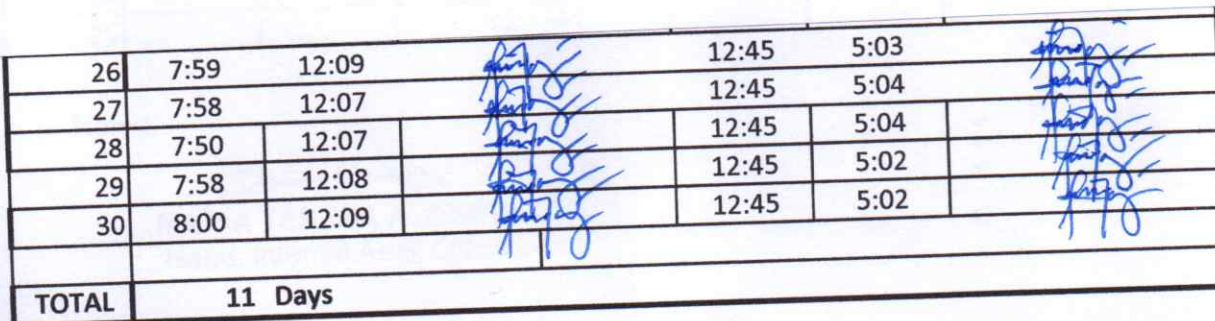 26 7:59 12:09 12:45 5:03
27 7:58 12:07 12:45 5:04
28 7:50 12:07 12:45 5:04
29 7:58 12:08 12:45 5:02
30 8:00 12:09 12:45 5:02
TOTAL 11 Days